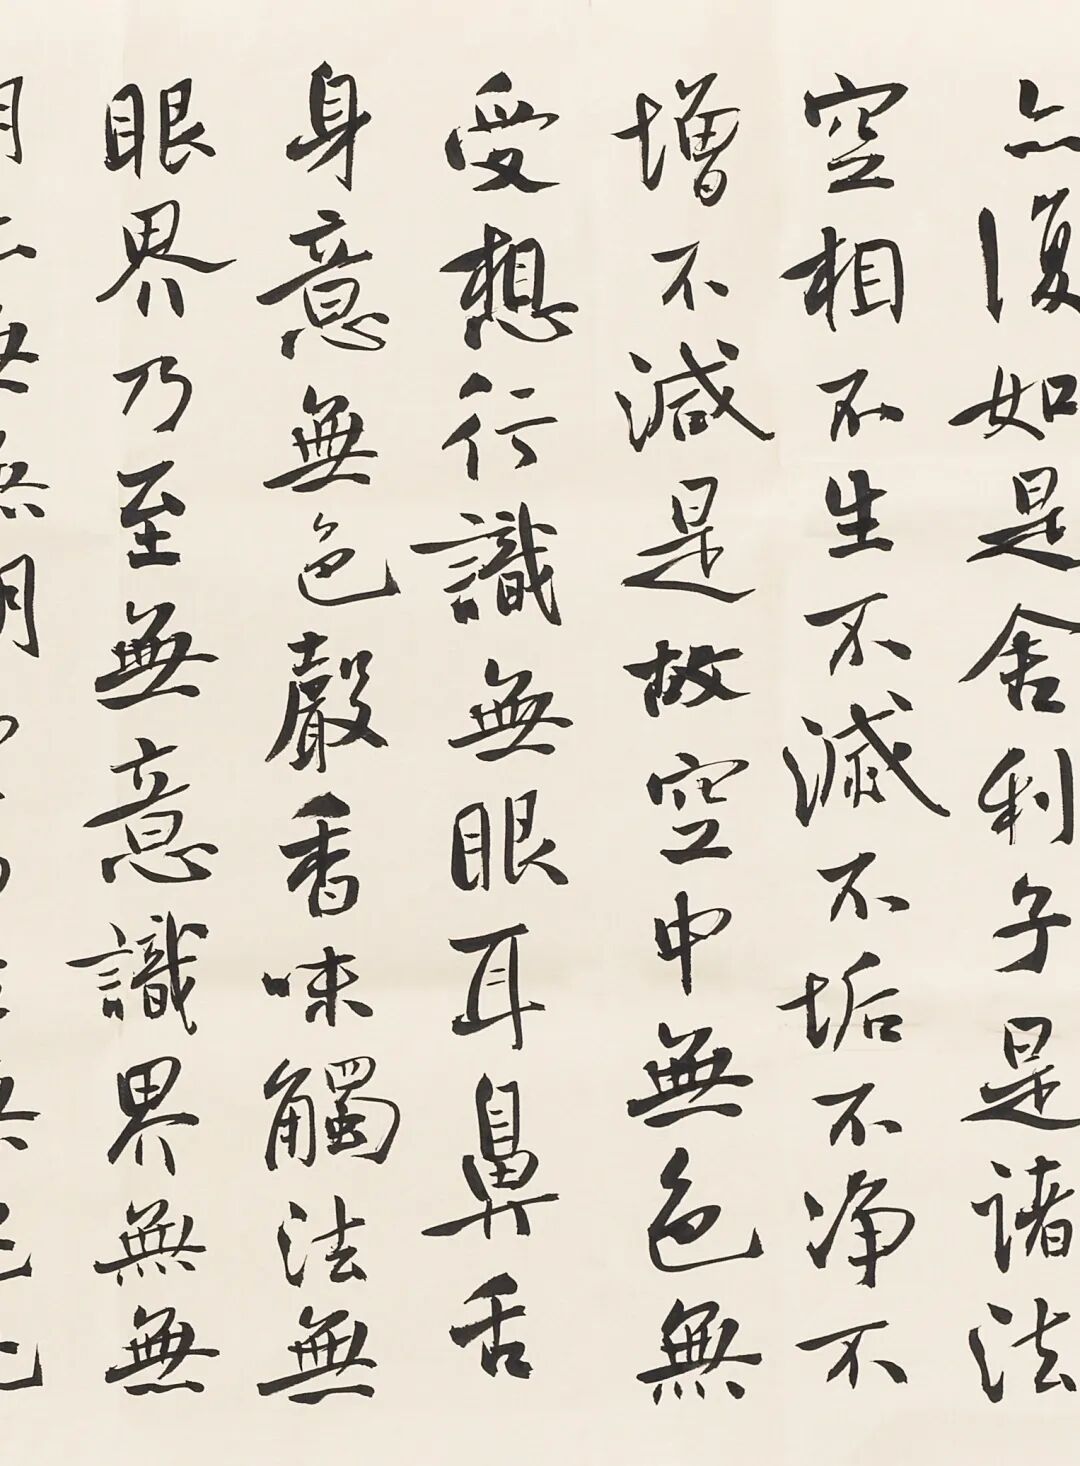 亦復如是舍利子是諸法
空相不生不滅不垢不净不
增不減是故空中無色無
受想行識無眼耳鼻舌
身意無色聲香味觸法無
眼界乃至無意識界無無
明亦無無明